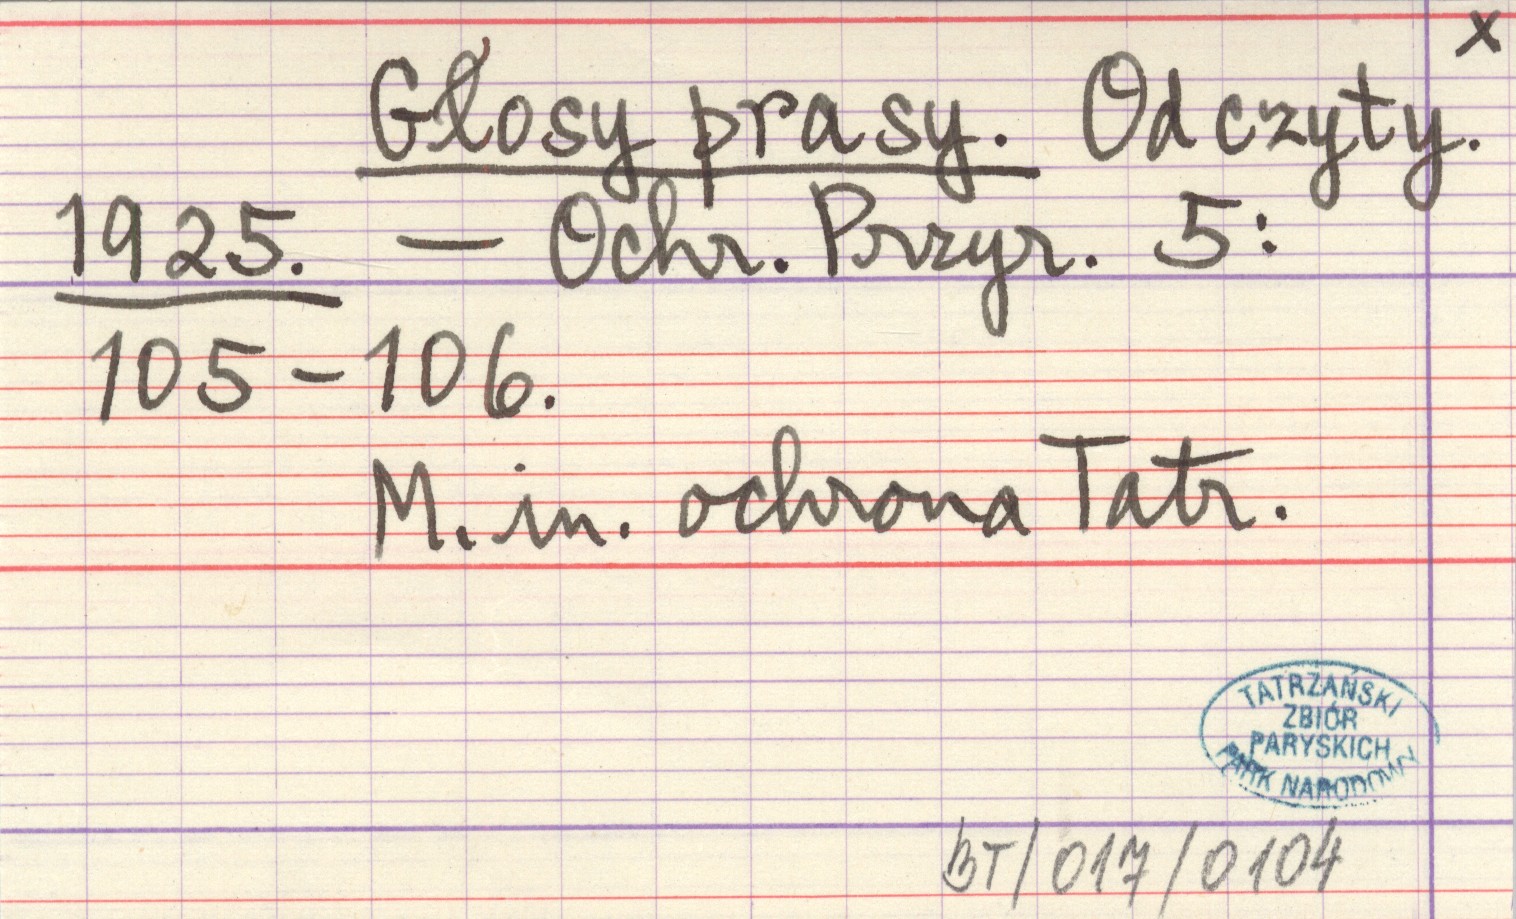 x
Głosy prasy. Odczyty.
1925. — Ochr. Przyr. 5:
105-106.
M. in. ochrona Tatr.
TATRZAŃSKI
ZBIÓR
PARYSKICH
PARK NARODOWY
BT/017/0104